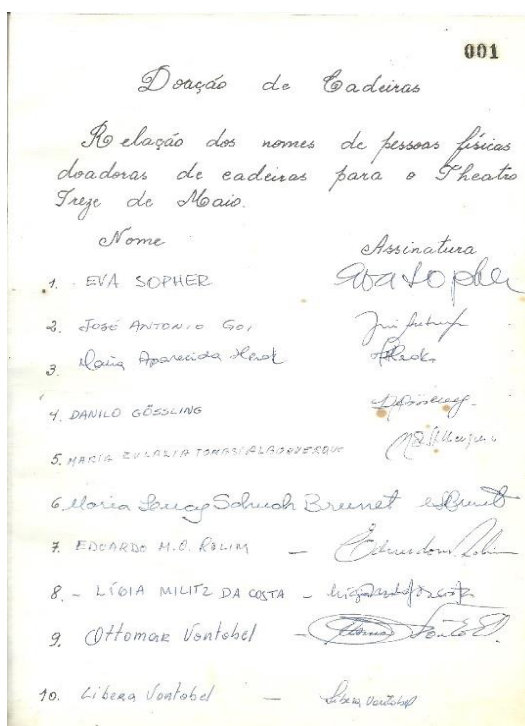 001
Doação de Cadeiras
Relação dos nomes de pessoas físicas
doadoras de cadeiras para o Theatro
Treze de Maio.
Nome Assinatura
1. EVA SOPHER Eva Sopher
2. JOSÉ ANTONIO GOI
3. Maria Aparecida
4. DANILO GÖSSLING
5. MARIA EULALIA TOMASI ALBUQUERQUE
6. Maria Lucy Schuch Brunet
7. EDUARDO M.O. ROLIM — Eduardo Rolim
8. - LÍGIA MILITZ DA COSTA -
9. Ottomar Vontobel -
10. Libera Vontobel — Libera Vontobel